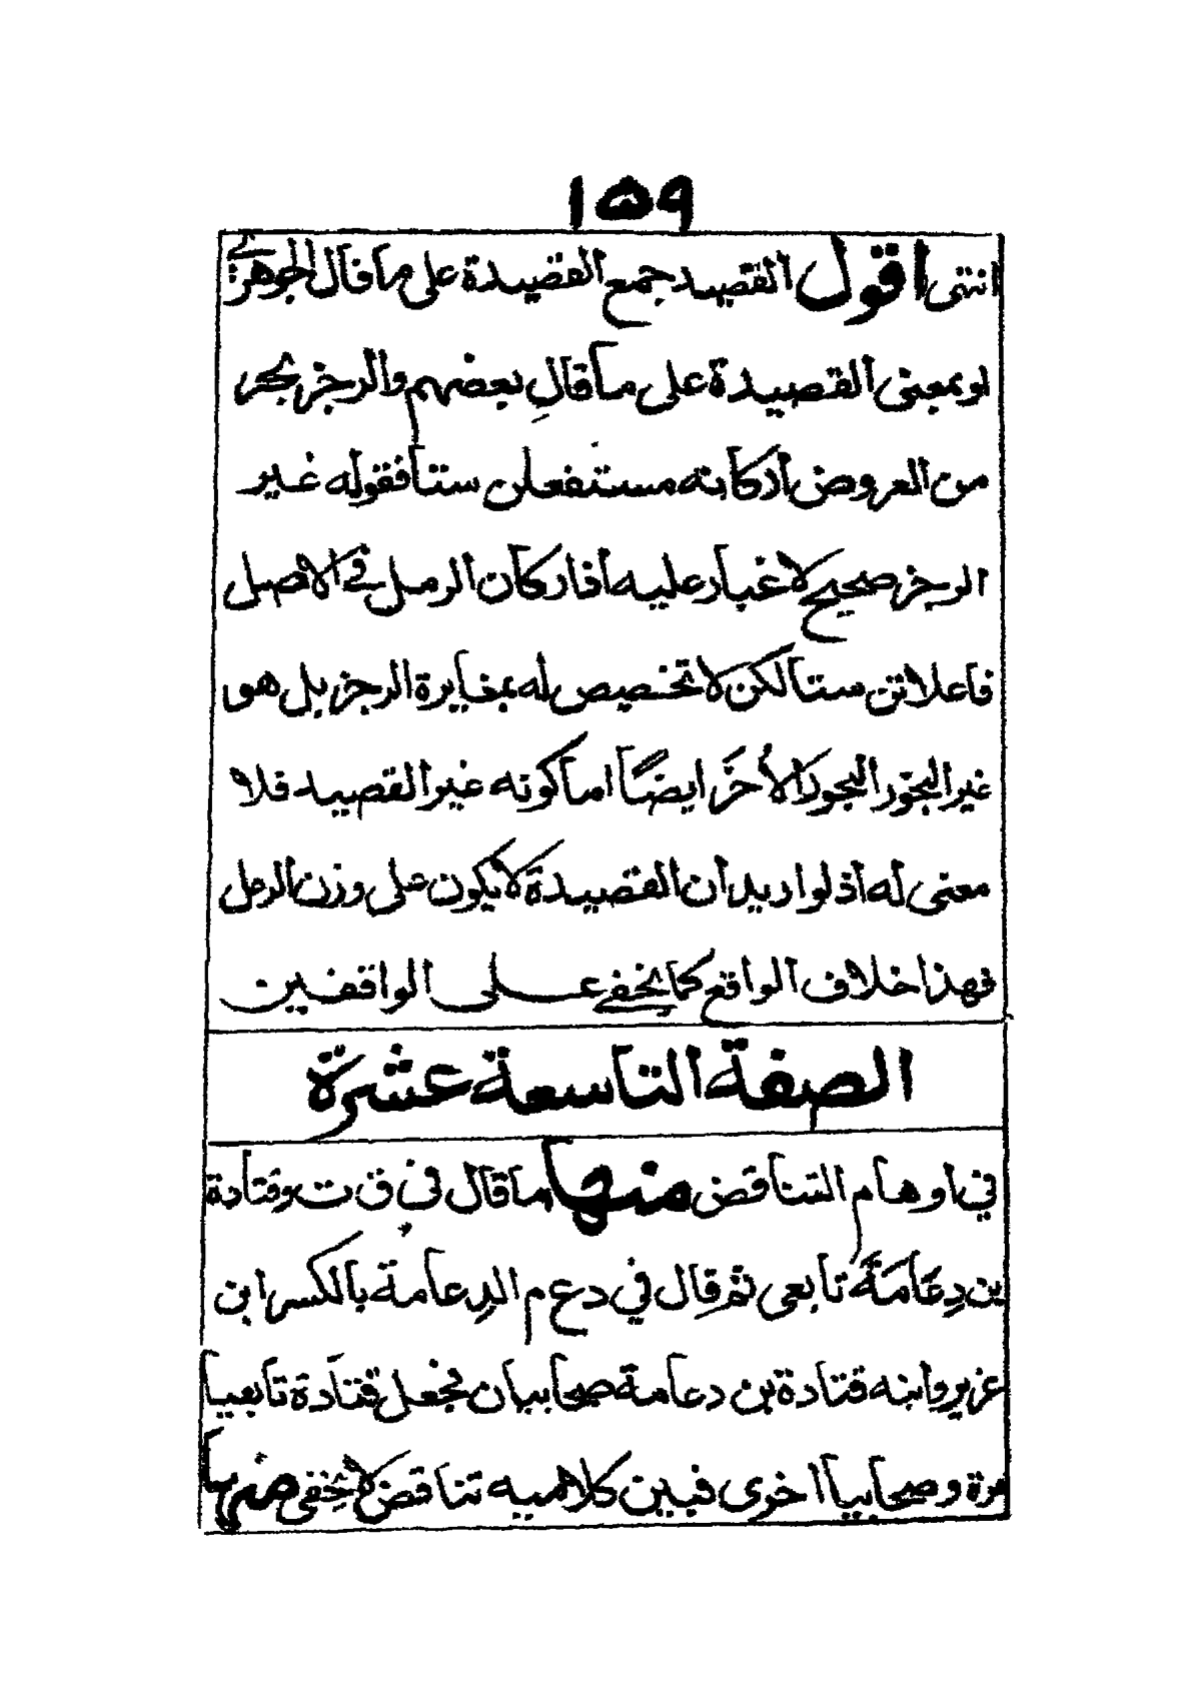 ١٥٩
انتهى اقول القصيد جمع القصيدة على ما قال الجوهرى
او بمعنى القصيدة على ما قال بعضهم والرجز بحر
من العروض اركانه مستفعلن ستا فقوله غير
الرجز صحيح لا غبار عليه اذا ركان الرمل فى الاصل
فاعلاتن ستا لكن لا تخصيص له بمغايرة الرجز بل هو
غير البحور الأخر ايضًا اما كونه غير القصيد فلا
معنى له اذ لو اريد ان القصيدة لا يكون على وزن الرمل
فهذا خلاف الواقع كما يخفى على الواقفين
الصفة التاسعة عشرة
فى اوهام التناقض منها ما قال فى ق ت د وقتادة
بن دِعَامَةَ تابعى ثم قال فى دع م الدِعامة بالكسر ابن
عزير وابنه قتادة بن دعامة صحابيان فجعل قتادة تابعيا
مرة وصحابيا اخرى فبين كلاميه تناقض لا يخفى منها